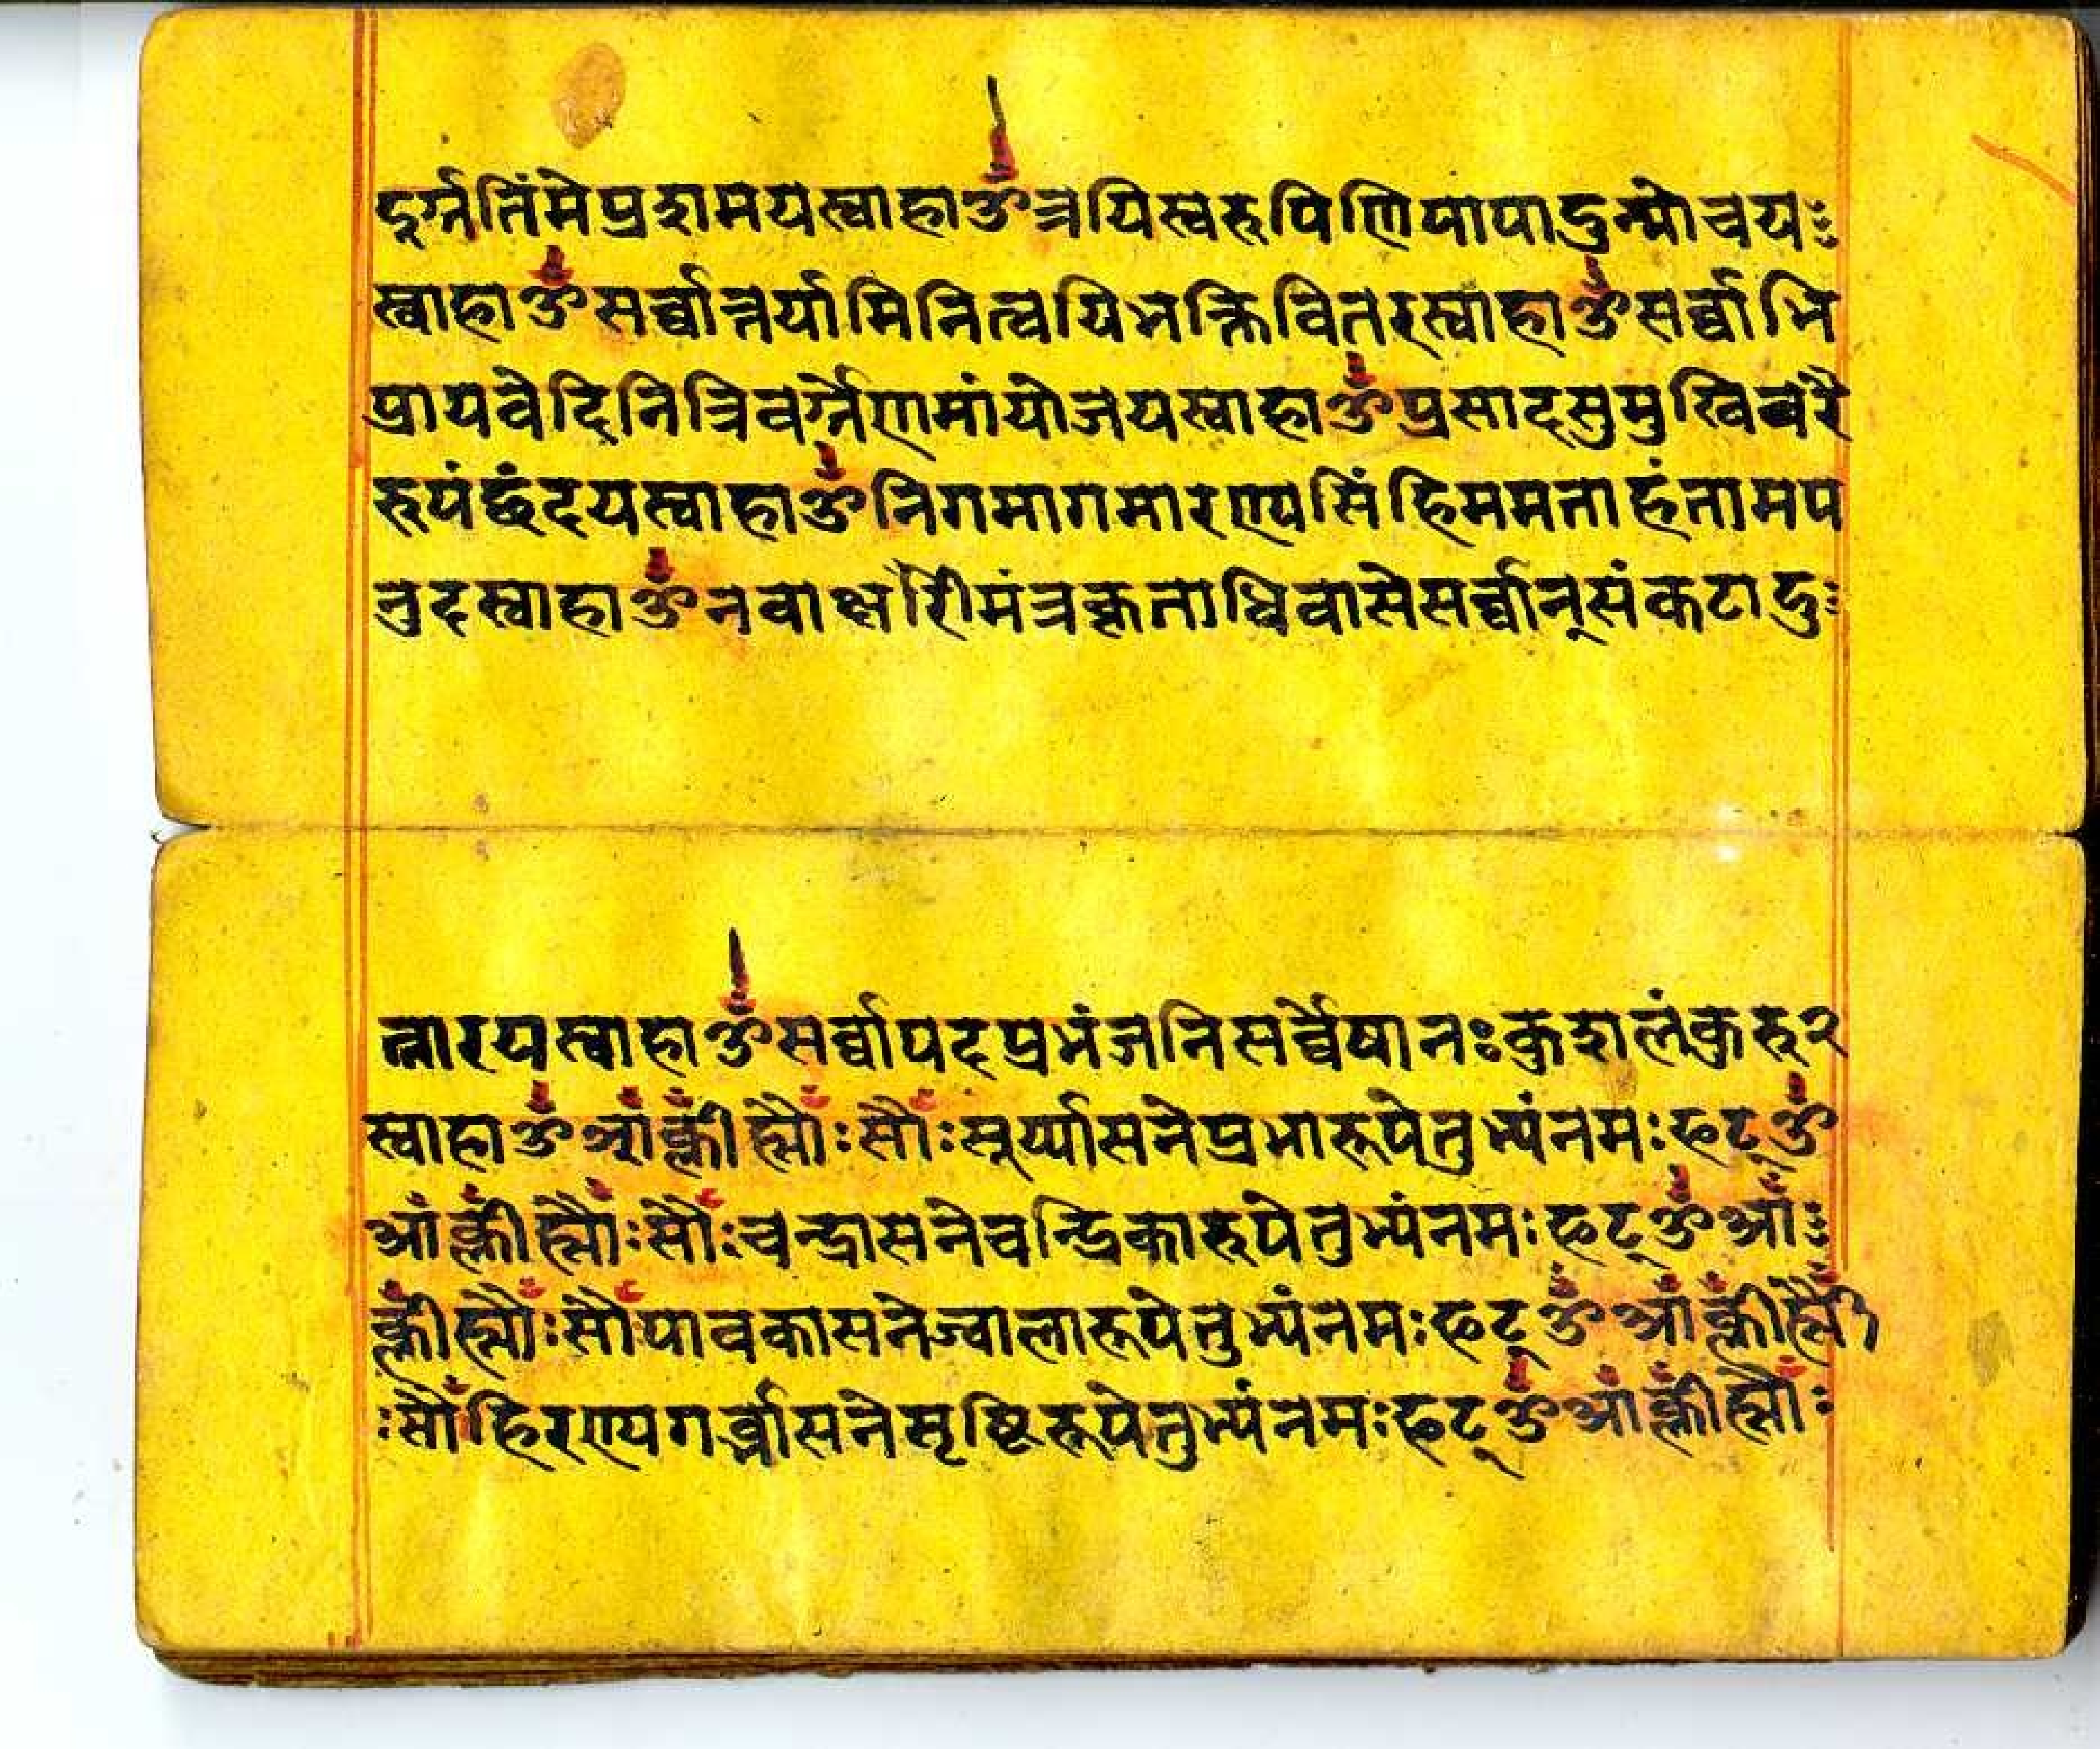 दुर्ग्गतिंमेप्रशमयस्वाहाॐत्रयिस्वरूपिणिपापादुन्मोचयः
स्वाहाॐसर्व्वान्तर्यामिनित्वयिभक्तिवितरस्वाहाॐसर्व्वाभि
प्रायवेदिनित्रिवर्ग्गेणमांयोजयस्वाहाॐप्रसादसुमुखिवरै
रूपंद्वंदयस्वाहाॐनिगमागमारण्यसिंहिममताहंतामप
नुदस्वाहाॐनवाक्षरिमंत्रकृताधिवासेसर्व्वान्संकटादुः
त्तारयस्वाहाॐसर्व्वापदप्रभंजनिसर्व्वेषानःकुशलंकुरु२
स्वाहाॐआँक्लीँह्सौँःसौँःसूर्य्यासनेप्रभारूपेतुभ्यंनमःफट्ॐ
आँक्लीँह्सौँःसौँःचन्द्रासनेचन्द्रिकारूपेतुभ्यंनमःफट्ॐआँः
क्लीँह्सौँःसौँपावकासनेज्वालारूपेतुभ्यंनमःफट्ॐआँक्लीँह्सौँ
ःसौँहिरण्यगर्ब्भासनेसृष्टिरूपेतुभ्यंनमःफट्ॐआँक्लीँह्सौँः